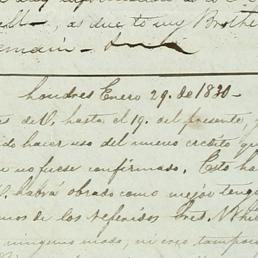 ll, as due to my Brothe
remain
Londres Enero 29. de 1830
es de V. hasta el 19. del presente y
do hacer uso del nuevo credito que
no fuese confirmado. Esto ha
V. habrá obrado como mejor tenga
mos de los referidos Sres. N. Wh
ninguno modo, ni eso tampoco